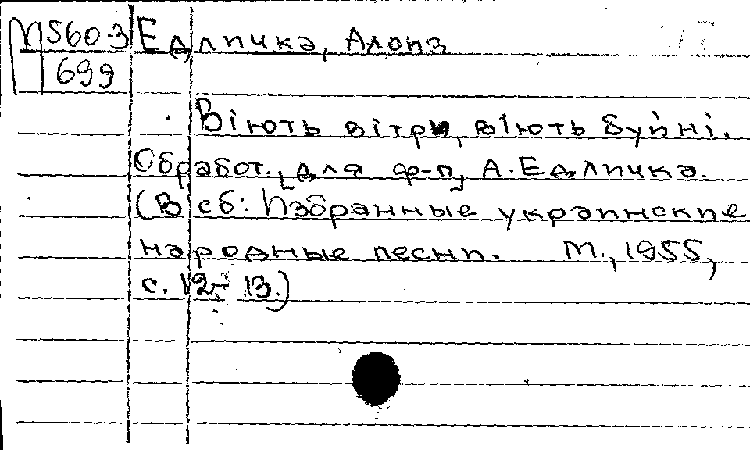 М 560-3
699
Едличка, Алоиз
Віють вітри, віють буйні.
Обработ. [для ф-п] А. Едличка.
(В сб: Избранные украинские
народные песни. М., 1955,
с. 12-13.)